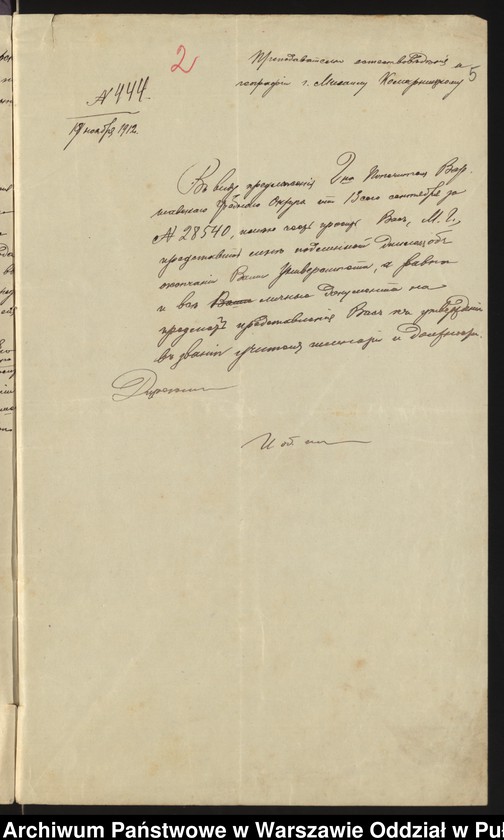 2
Преподавателю естествоведения и
географии г. Михаилу Комарницкому
5
№ 444.
19 ноября 1912.
Въ виду предложенія Г-на Попечителя Вар-
шавскаго Учебнаго Округа отъ 13 сего сентября за
№ 28540, имѣю честь просить Васъ, М. Г.,
представить мнѣ подлинный дипломъ объ
окончаніи Вами Университета, а равно
и всѣ Ваши личные документы на
предметъ представленія Васъ къ утвержденію
въ званіи учителя гимназіи и
Директоръ
Archiwum Państwowe w Warszawie Oddział w Pu